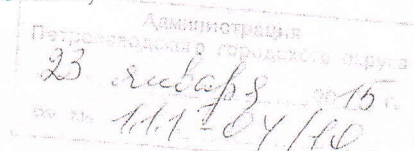 Администрация
Петрозаводского городского округа
23 января 2015 г.
1.1.1-04/10